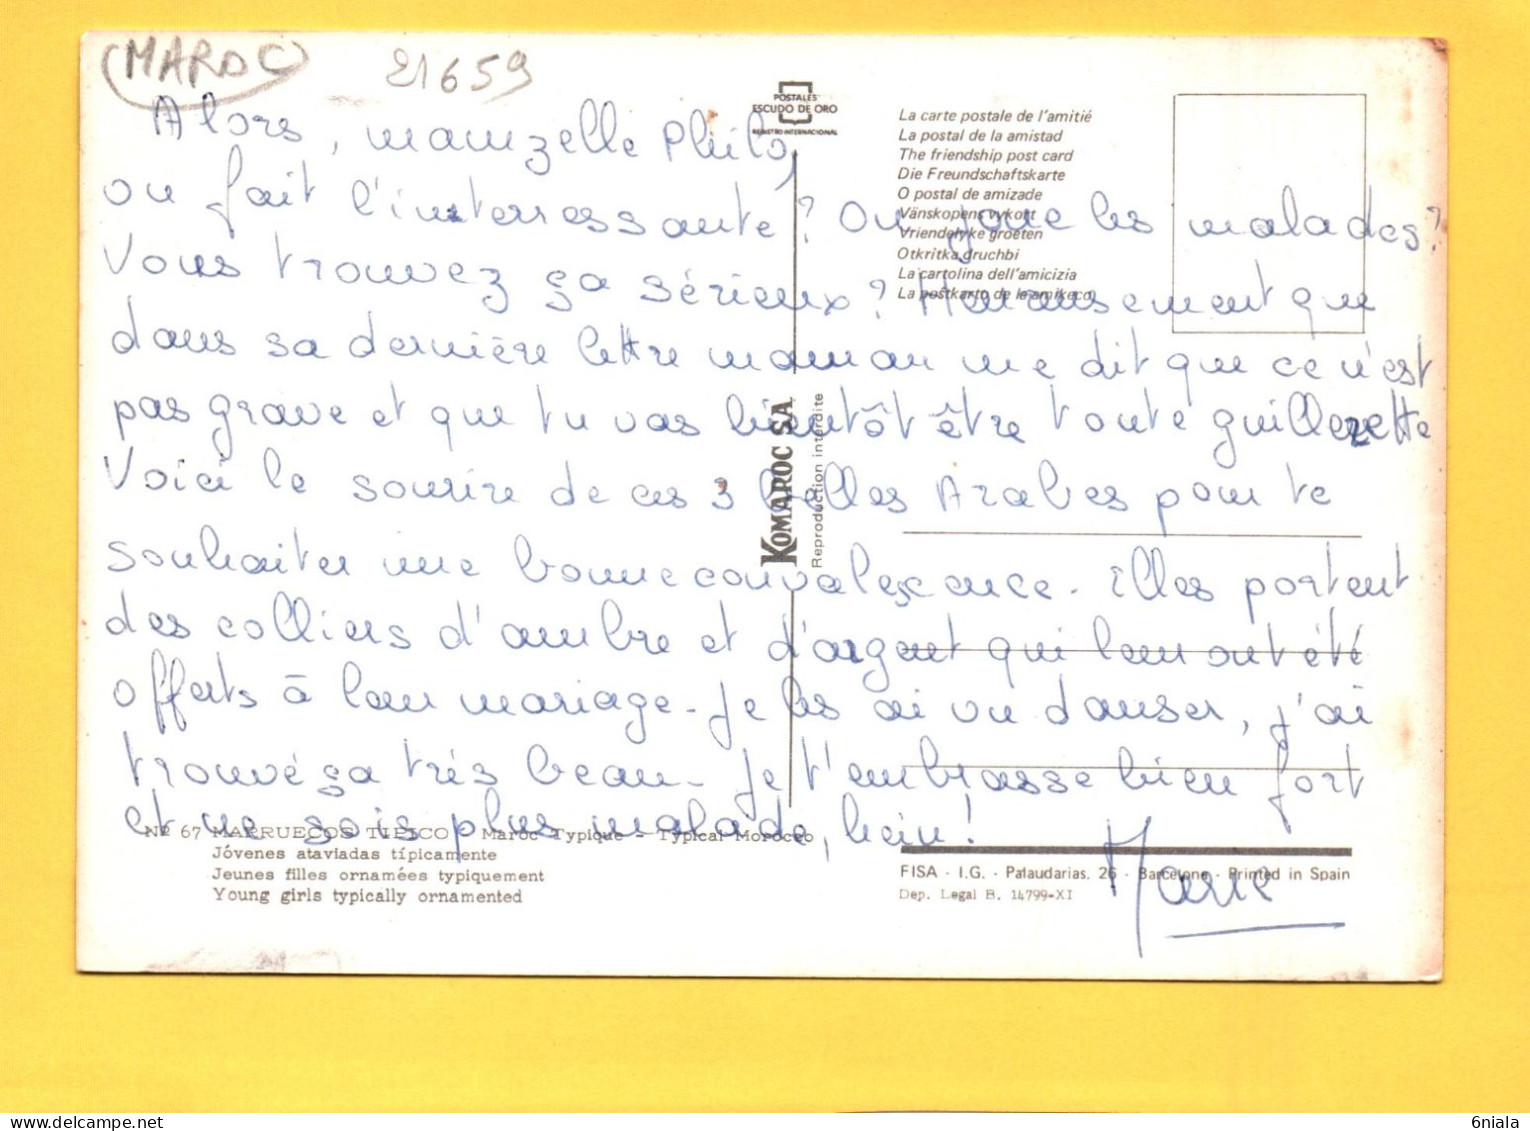 (MAROC) 21659
Alors, mamzelle Philo,
on fait l'interressante ? On joue les malades ?
Vous trouvez ça sérieux ? Heureusement que
dans sa dernière lettre maman me dit que ce n'est
pas grave et que tu vas bientôt être toute guillerette
Voici le sourire de ces 3 belles Arabes pour te
souhaiter une bonne convalescence. Elles portent
des colliers d'ambre et d'argent qui leur ont été
offerts à leur mariage. Je les ai vu danser, j'ai
trouvé ça très beau. Je t'embrasse bien fort
et ne sois plus malade, hein !
Marie
POSTALES
ESCUDO DE ORO
REGISTRO INTERNACIONAL
La carte postale de l'amitié
La postal de la amistad
The friendship post card
Die Freundschaftskarte
O postal de amizade
Vänskopens vykort
Vriendelyke groeten
Otkritka druchbi
La cartolina dell'amicizia
La postkarto de la amikeco
KOMAROC SA
Reproduction interdite
Nº 67 MARRUECOS TIPICO - Maroc Typique - Typical Morocco
Jóvenes ataviadas típicamente
Jeunes filles ornamées typiquement
Young girls typically ornamented
FISA - I.G. - Palaudarias, 26 - Barcelona - Printed in Spain
Dep. Legal B. 14799-XI
6niala